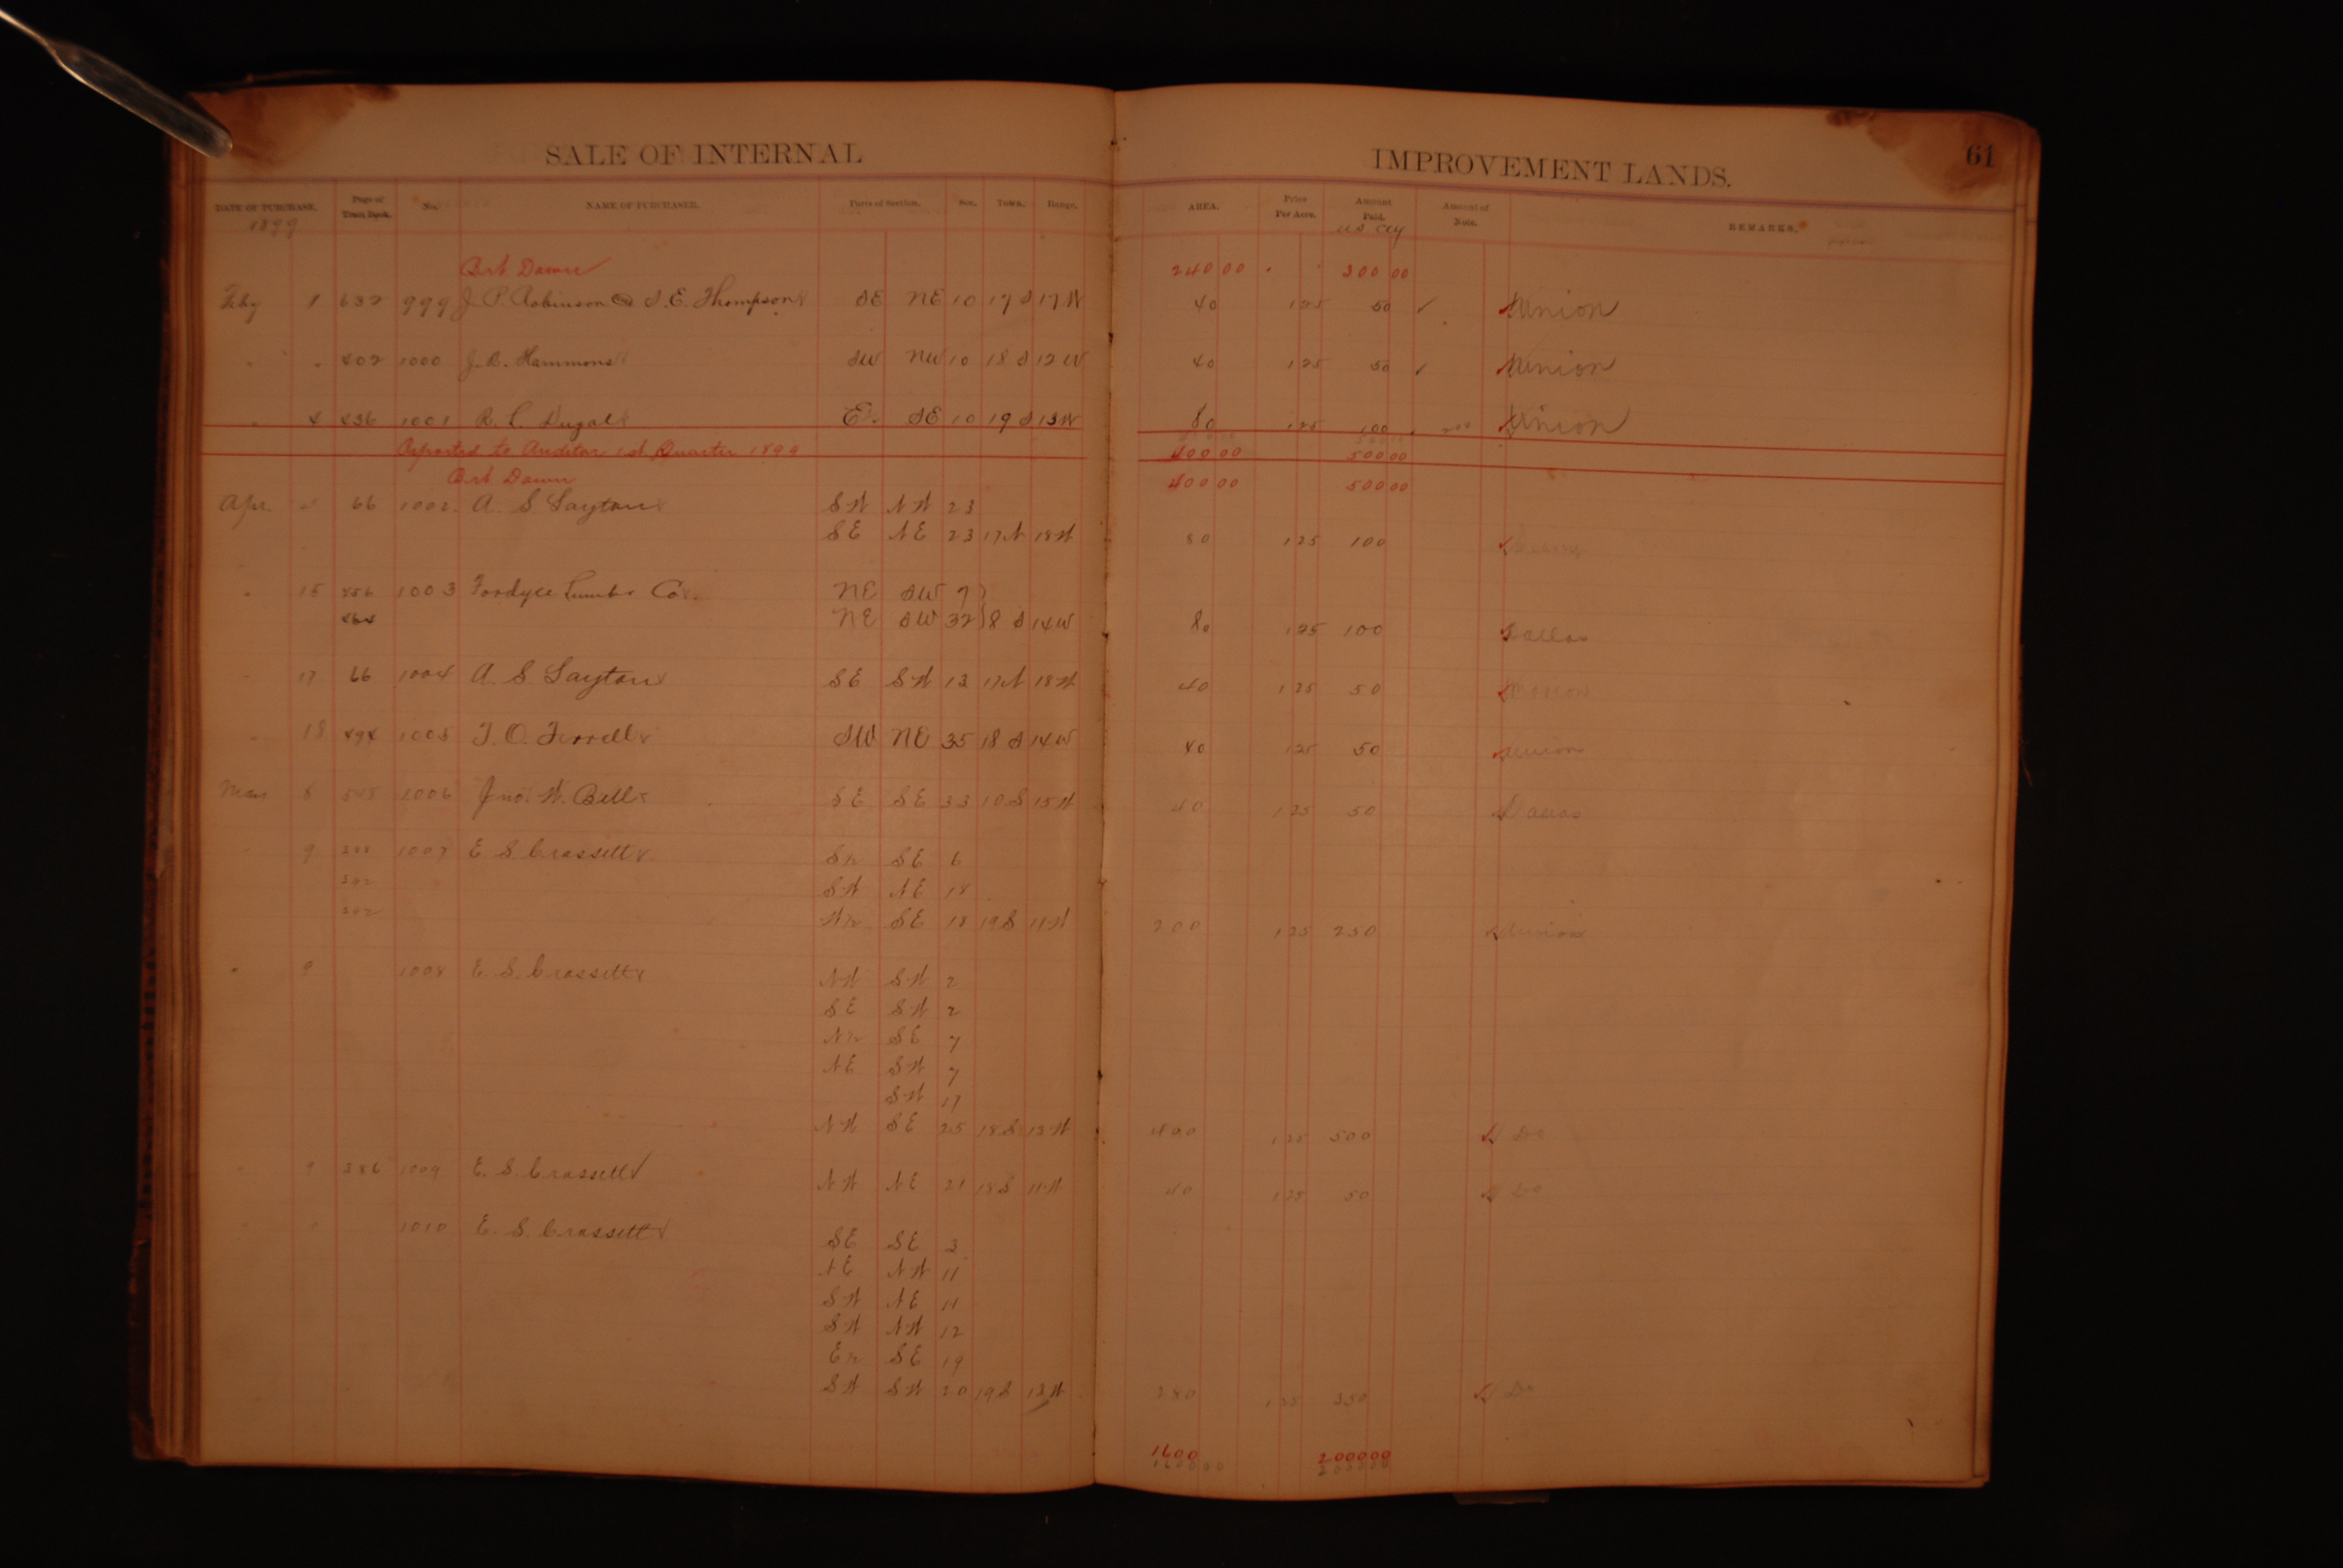 SALE OF INTERNAL IMPROVEMENT LANDS. 61
DATE OF PURCHASE. Page of Tract Book. No. NAME OF PURCHASER. Parts of Section. Sec. Town. Range. AREA. Price Per Acre. Amount Paid. Amount of Note. REMARKS.
1899 US Cy
Brt Down 240 00 300 00
Feby 1 632 999 J. P. Robinson & S. E. Thompson SE NE 10 17 S 17 W 40 1 25 50 Union
" " 402 1000 J. B. Hammons SW NW 10 18 S 12 W 40 1 25 50 Union
" 4 436 1001 R. L. Dugal E½ SE 10 19 S 13 W 80 1 25 100 Union
Reported to Auditor 1st Quarter 1899 400 00 500 00
Brt Down 400 00 500 00
Apr. 66 1002 A. S. Layton SW NW 23
SE NE 23 17 N 18 W 80 1 25 100
" 15 456 1003 Fordyce Lumbr Co. NE SW 7
464 NE SW 32 8 S 14 W 80 1 25 100 Dallas
" 17 66 1004 A. S. Layton SE SW 13 17 N 18 W 40 1 25 50
" 18 494 1005 T. O. Ferrell SW NE 35 18 S 14 W 40 1 25 50 Union
May 8 1006 Jno. W. Bell SE SE 33 10 S 15 W 40 1 25 50 Dallas
" 9 1007 E S Crossett S½ SE 6
392 SW NE 18
392 W½ SE 18 19 S 11 W 200 1 25 250 Union
" 9 1008 E. S. Crossett NW SW 2
SE SW 2
N½ SE 7
NE SW 7
SW 17
NW SE 25 18 S 13 W 400 1 25 500 Do
" 9 386 1009 E. S. Crossett NW NE 21 18 S 11 W 40 1 25 50 Do
" " 1010 E. S. Crossett SE SE 3
NE NW 11
SW NE 11
SW NW 12
E½ SE 19
SW SW 20 19 S 13 W 280 1 25 350 Do
1600 2000 00
1600 00 2000 00